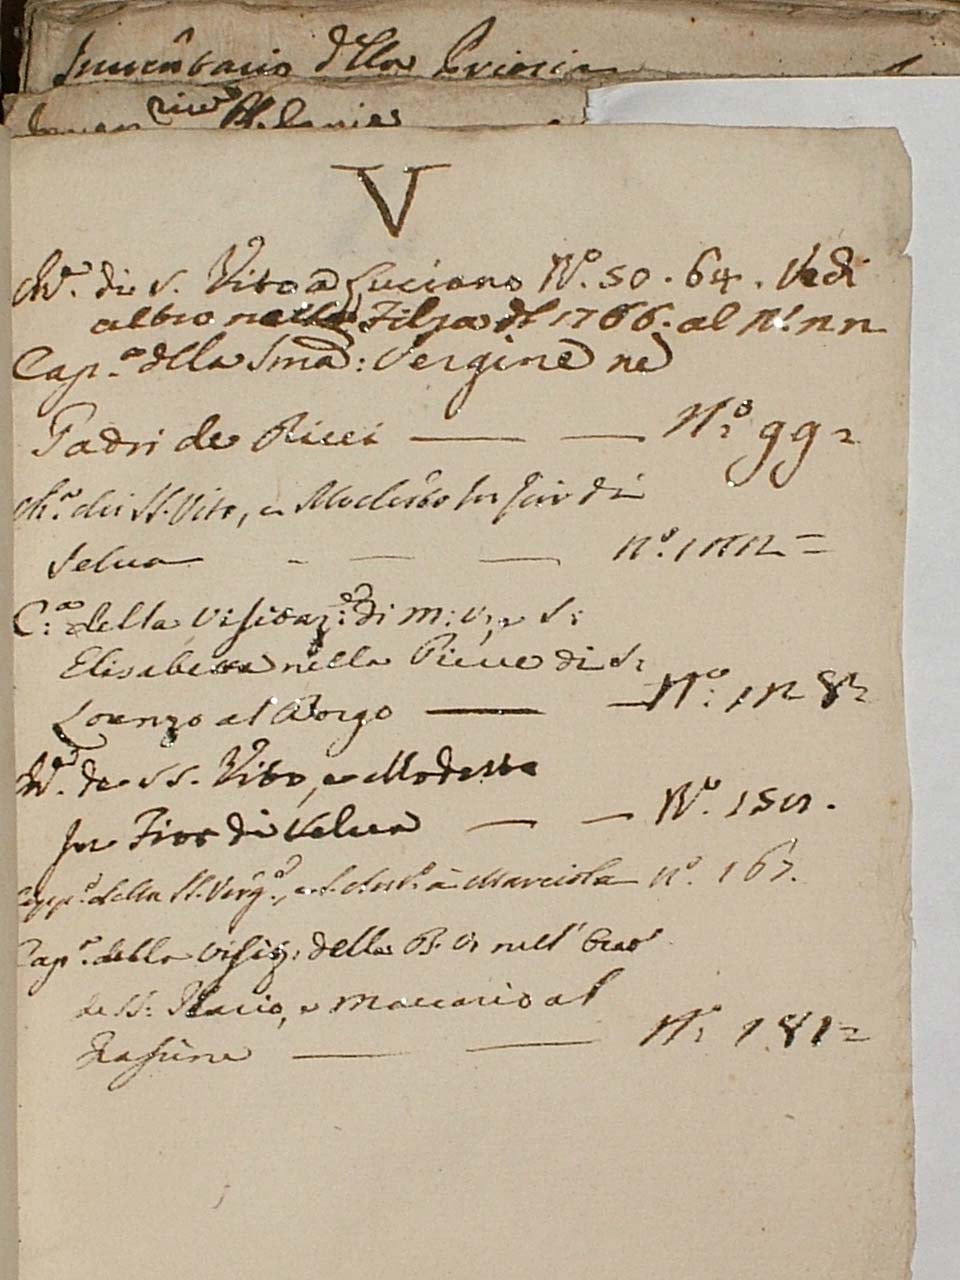 Inventario della Prioria
V
Ch.ª di S. Vito a Luciano N.º 50. 64. Vedi
altro nella Filza del 1766. al N.
Cap.ª della Sma: Vergine ne
Padri de Ricci — — N.º 99
Ch.ª dei SS. Vito, e Modesto In Fior di
Selva — — — N.º
C.ª della Visitaz: di M: V, e S:
Elisabetta nella Pieve di S.
Lorenzo al Borgo — — N.º 128
Ch.ª de SS. Vito, e Modesto
In Fior di Velva — — N.º
Capp.ª della SS. Verg.e, a Marciola N.º 167.
Cap.ª della Visiz: della B. V. nell'
de SS. Ilario, e Maccario al
— — N.º 181